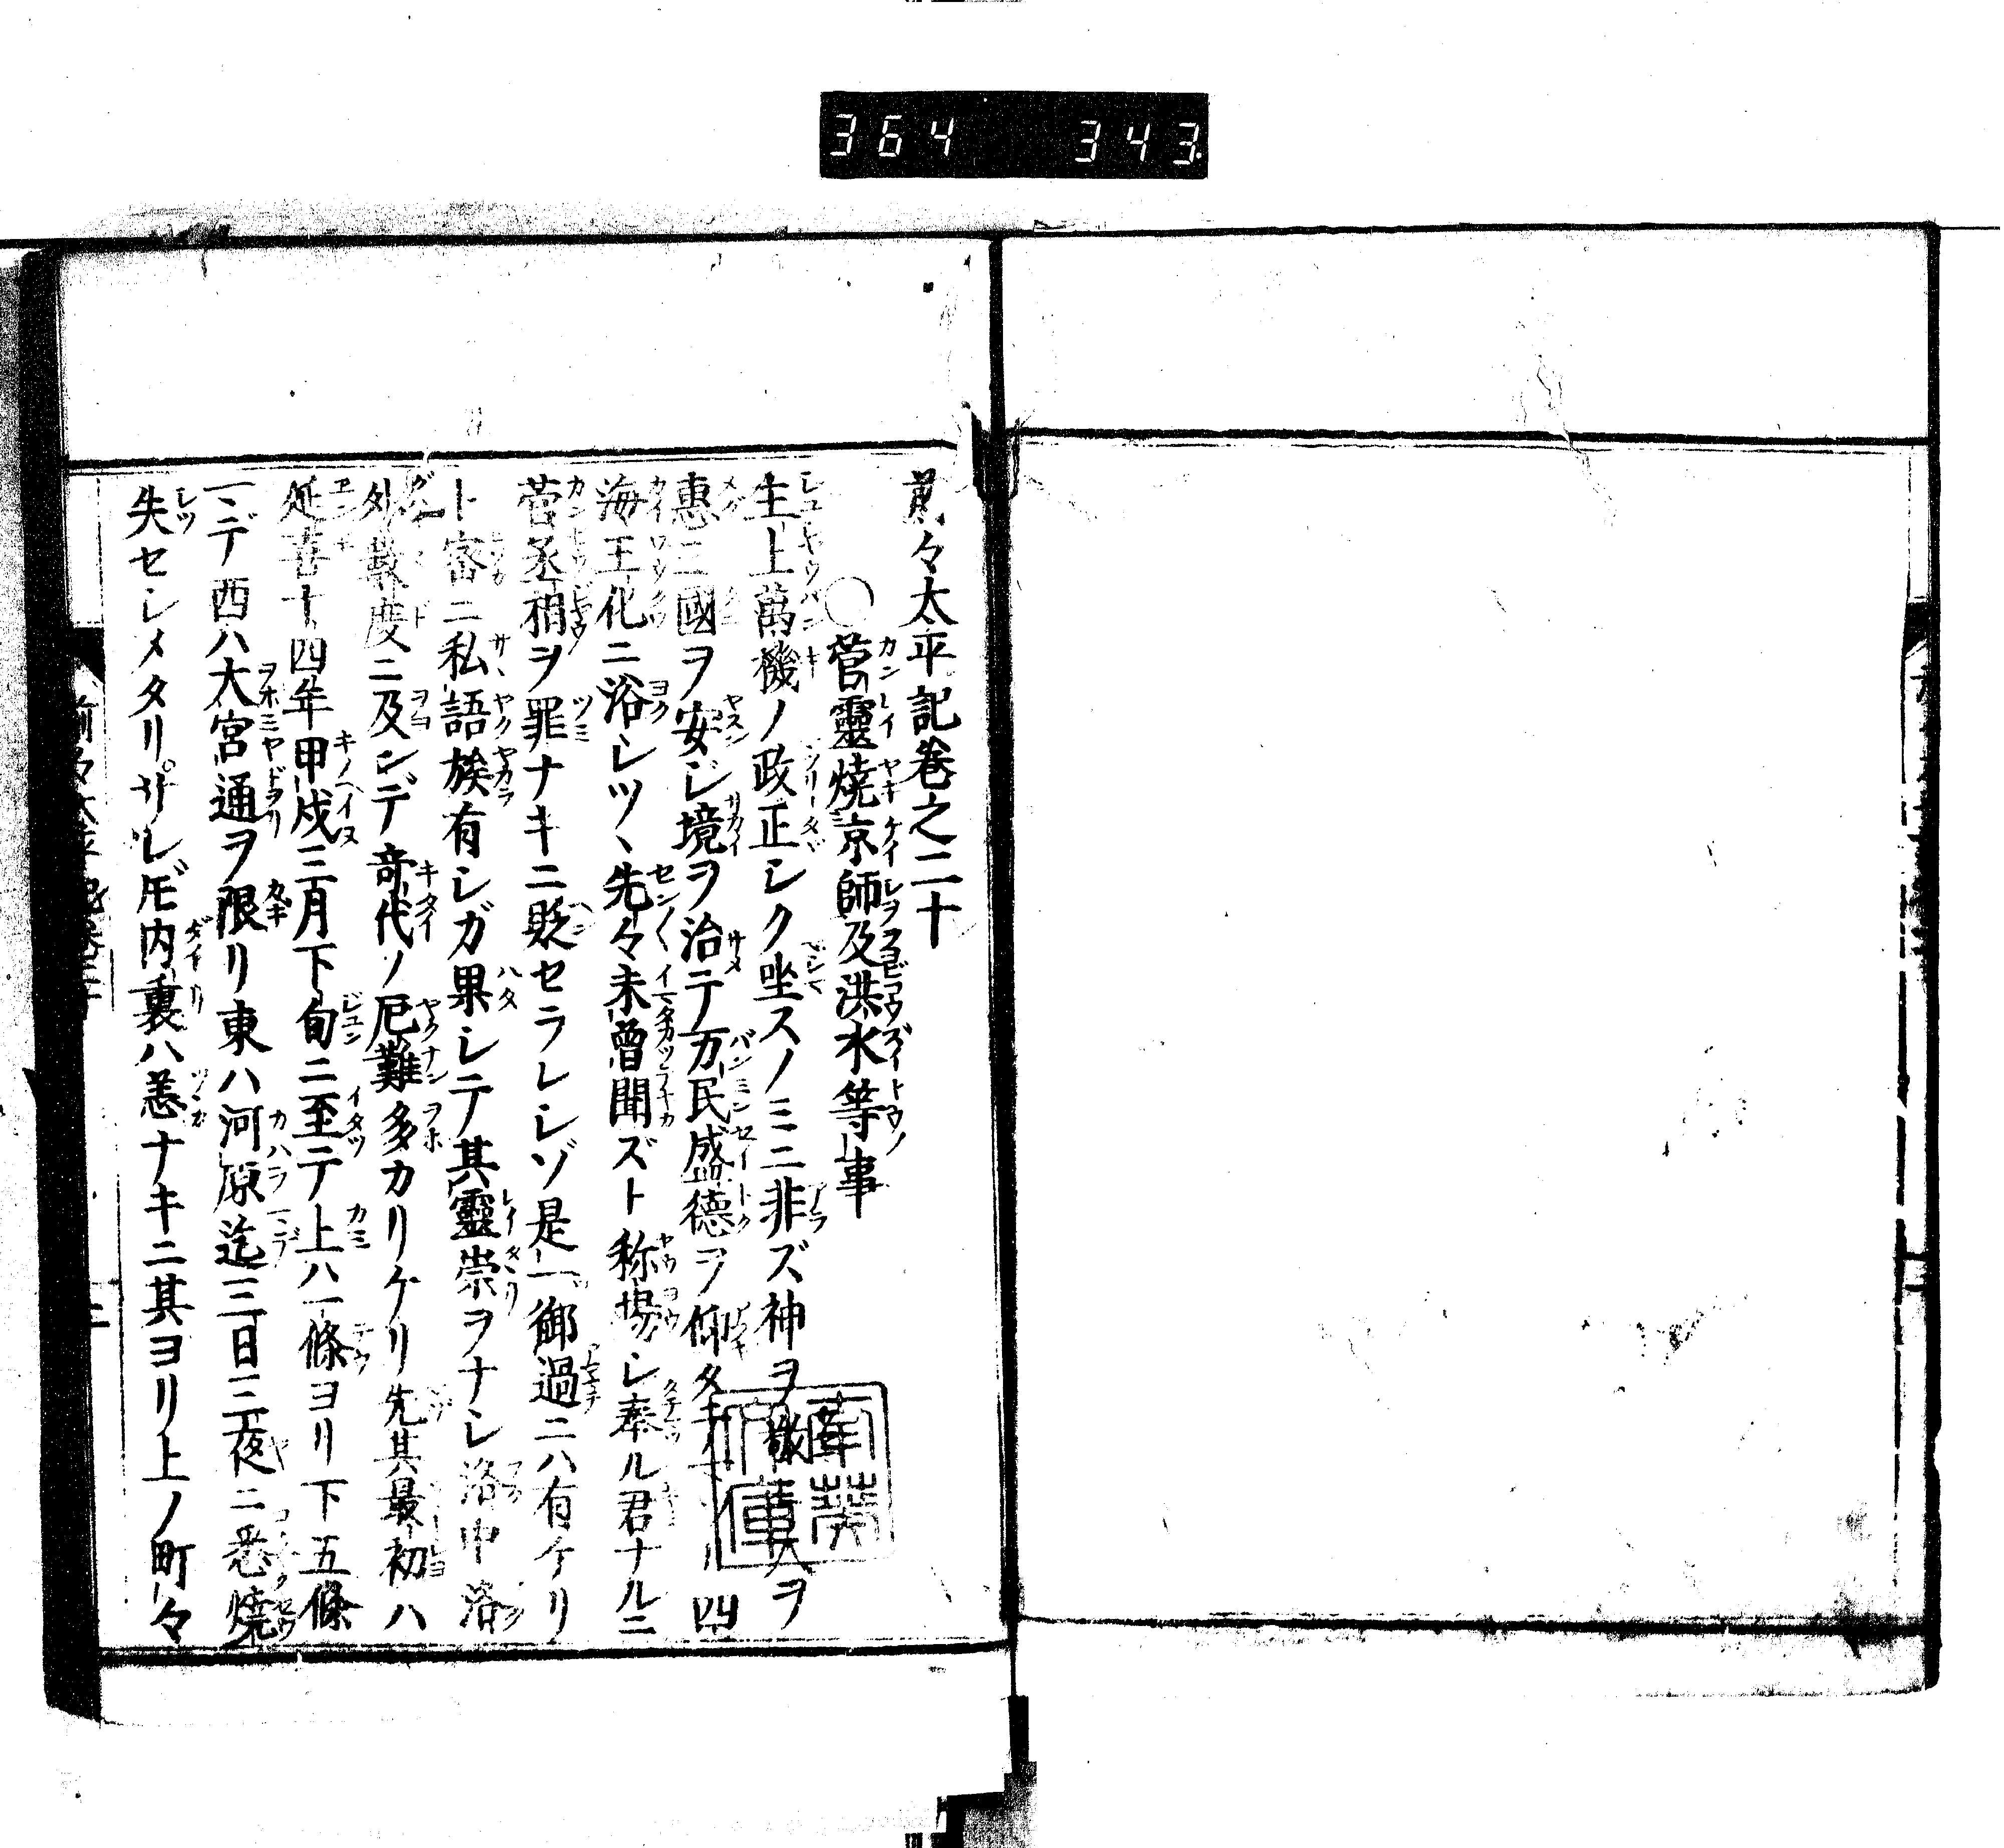 364 343
前々太平記卷之二十
○菅靈燒京師及洪水等事
主上萬機ノ政正シク坐スノミニ非ズ神ヲ敬人ヲ
惠ニ國ヲ安ジ境ヲ治テ万民盛德ヲ仰 四
海王化ニ浴シツヽ先々未曾聞ズト称揚シ奉ル君ナルニ
菅丞相ヲ罪ナキニ貶セラレシゾ是一御過ニハ有ケリ
ト密ニ私語族有シガ果シテ其靈祟ヲナシ洛中洛
外數度ニ及ンデ奇代ノ厄難多カリケリ先其最初ハ
延喜十四年甲戌三月下旬ニ至テ上ハ一條ヨリ下五條
マデ西ハ大宮通ヲ限リ東ハ河原迄三日三夜ニ悉燒
失セシメタリサレドモ内裏ハ恙ナキニ其ヨリ上ノ町々